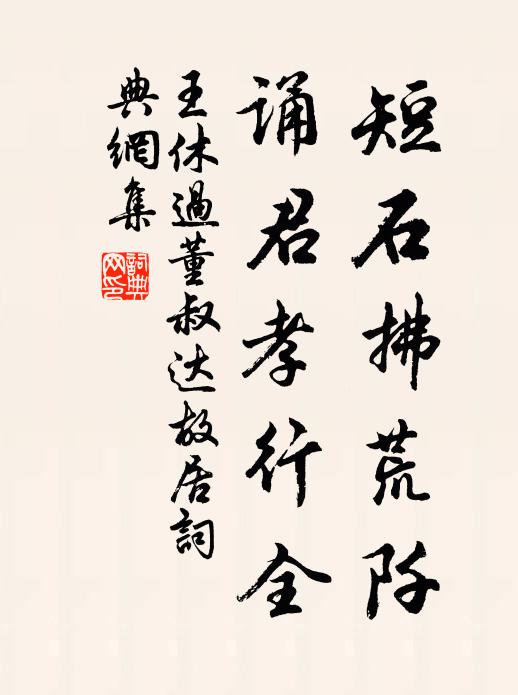 短石拂荒阡
诵君孝行全
王休過董叔达故居詞
典網集
詞典网印